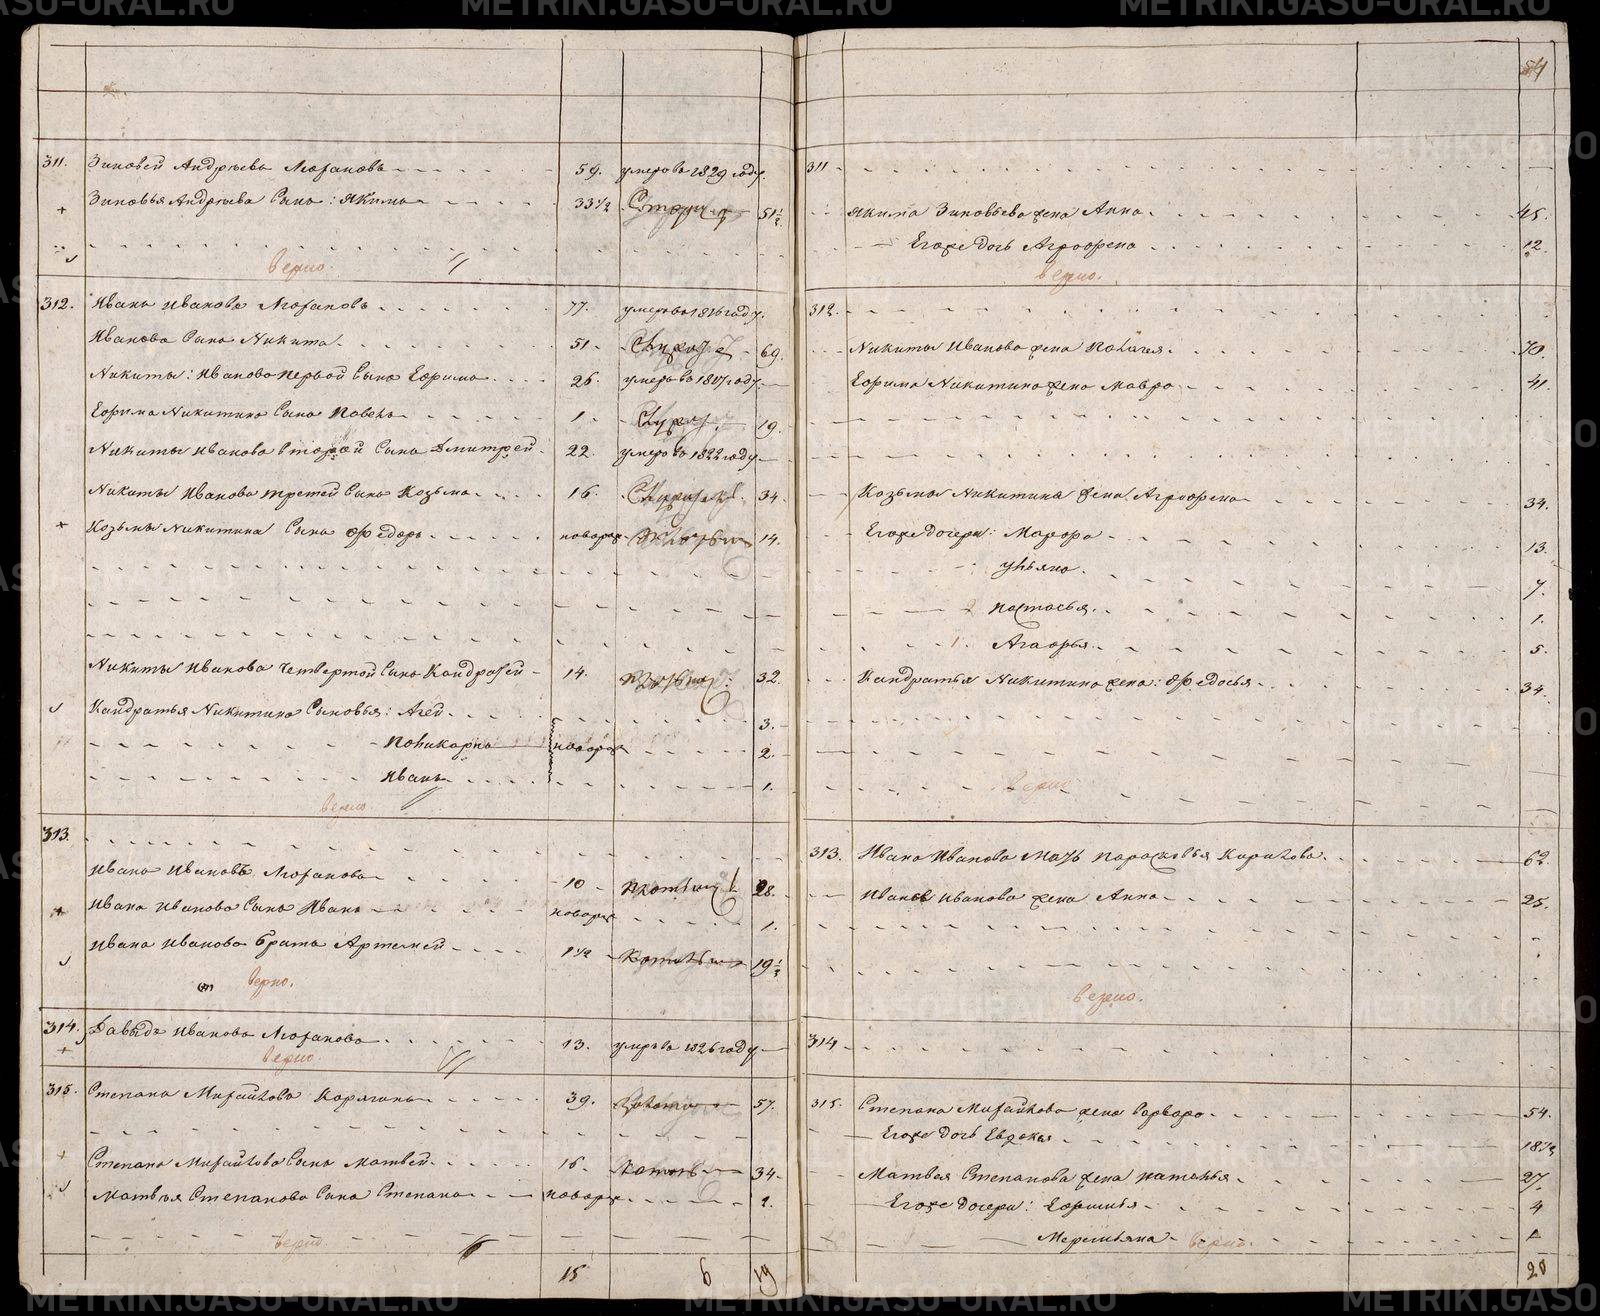 54
311. Зиновей Андреевъ Люхановъ 59. умеръ въ 1829 году.
Зиновья Андреева сынъ: Якимъ 33 1/2 51 1/2
верно.
312. Иванъ Ивановъ Люхановъ 77. умеръ въ 1816 году.
Ивана сынъ Никита 51. 69.
Никиты Иванова первой сынъ Ефимъ 26. умеръ въ 1817 году.
Ефима Никитина сынъ Павелъ 1. 19.
Никиты Иванова второй сынъ Дмитрей 22. умеръ въ 1822 году
Никиты Иванова третей сынъ Козьма 16. 34.
Козьмы Никитина сынъ Федоръ новорож 14.
Никиты Иванова четвертой сынъ Кондратей 14. 32.
Кондратья Никитина сыновья: Агей 3.
Поликарпъ новорож 2.
Иванъ 1.
верно
313.
Иванъ Ивановъ Люхановъ 10 28.
Ивана Иванова сынъ Иванъ новорож 1.
Ивана Иванова братъ Артемей 1 1/2 19 1/2
верно.
314. Давыдъ Ивановъ Люхановъ 13. умеръ въ 1826 году
верно
315. Степанъ Михайловъ Корягинъ 39. 57.
Степана Михайлова сынъ Матвей 16. 34.
Матвея Степанова сынъ Степанъ новорож 1.
верно
15 6 19
311
Якима Зиновьева жена Анна 45.
Егоже дочь Агрофена 12.
верно.
312.
Никиты Иванова жена Пелагея 70.
Ефима Никитина жена Мавра 41
Козьмы Никитина жена Агрофена 34.
Егоже дочери: 13.
Ульяна 7.
Настасья 1.
Агафья 5.
Кондратья Никитина жена: Федосья 34.
верно
313. Ивана Иванова мать Парасковья Кирилова 62.
Ивана Иванова жена Анна 25.
верно.
314
315. Степана Михайлова жена Варвара 54.
Егоже дочь Евдокья 18 1/2
Матвея Степанова жена Наталья 27.
Егоже дочери: Ефимья 4
верно.
20
METRIKI.GASU-URAL.RU